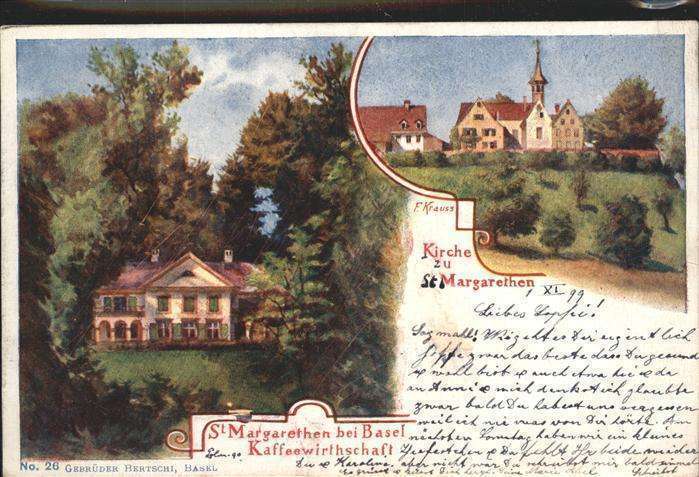 F. Krauss
Kirche
zu
St Margarethen
1 XI 99
Liebes Sophie!
Sag mahl! Wie geht es Dir eigentlich
hoffe zwar das beste dass Du gesund
& wohl bist & auch etwa die & da
an Anni & mich denkst ich glaubte
zwar bald Du habest uns vergessen
weil ich nie was von Dir hörte. Am
nächsten Sonntag haben wir ein kleines
& Du fehlst
Du & Karolina, aber nicht war Du schreibst mir bald einmal
St Margarethen bei Basel
Kaffeewirthschaft
No. 26 GEBRÜDER BERTSCHI, BASEL